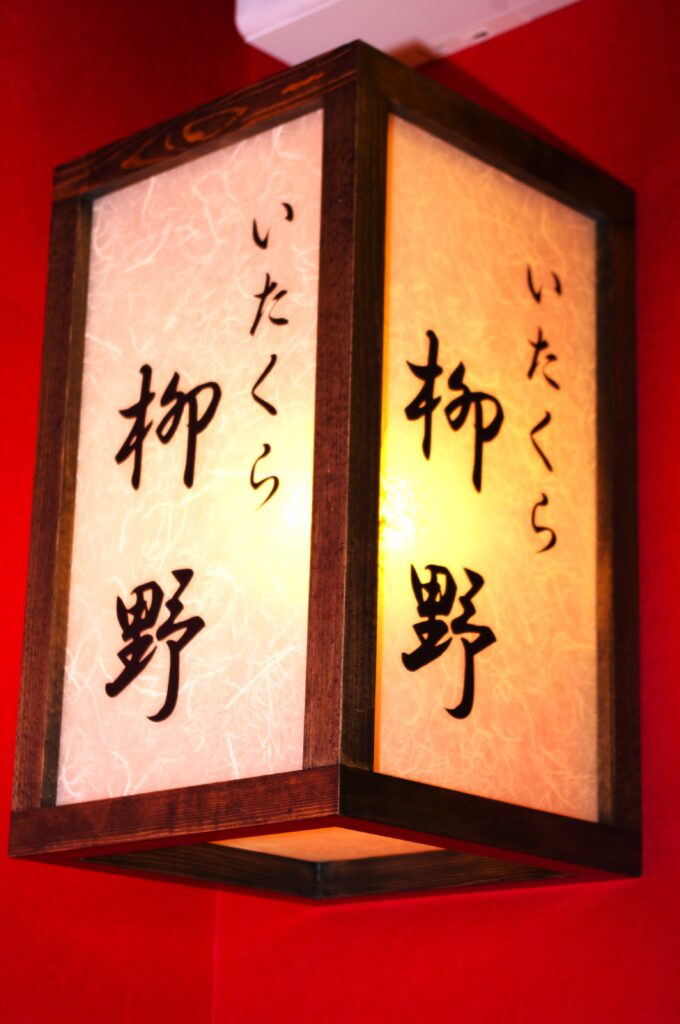 いたくら
柳野
いたくら
柳野